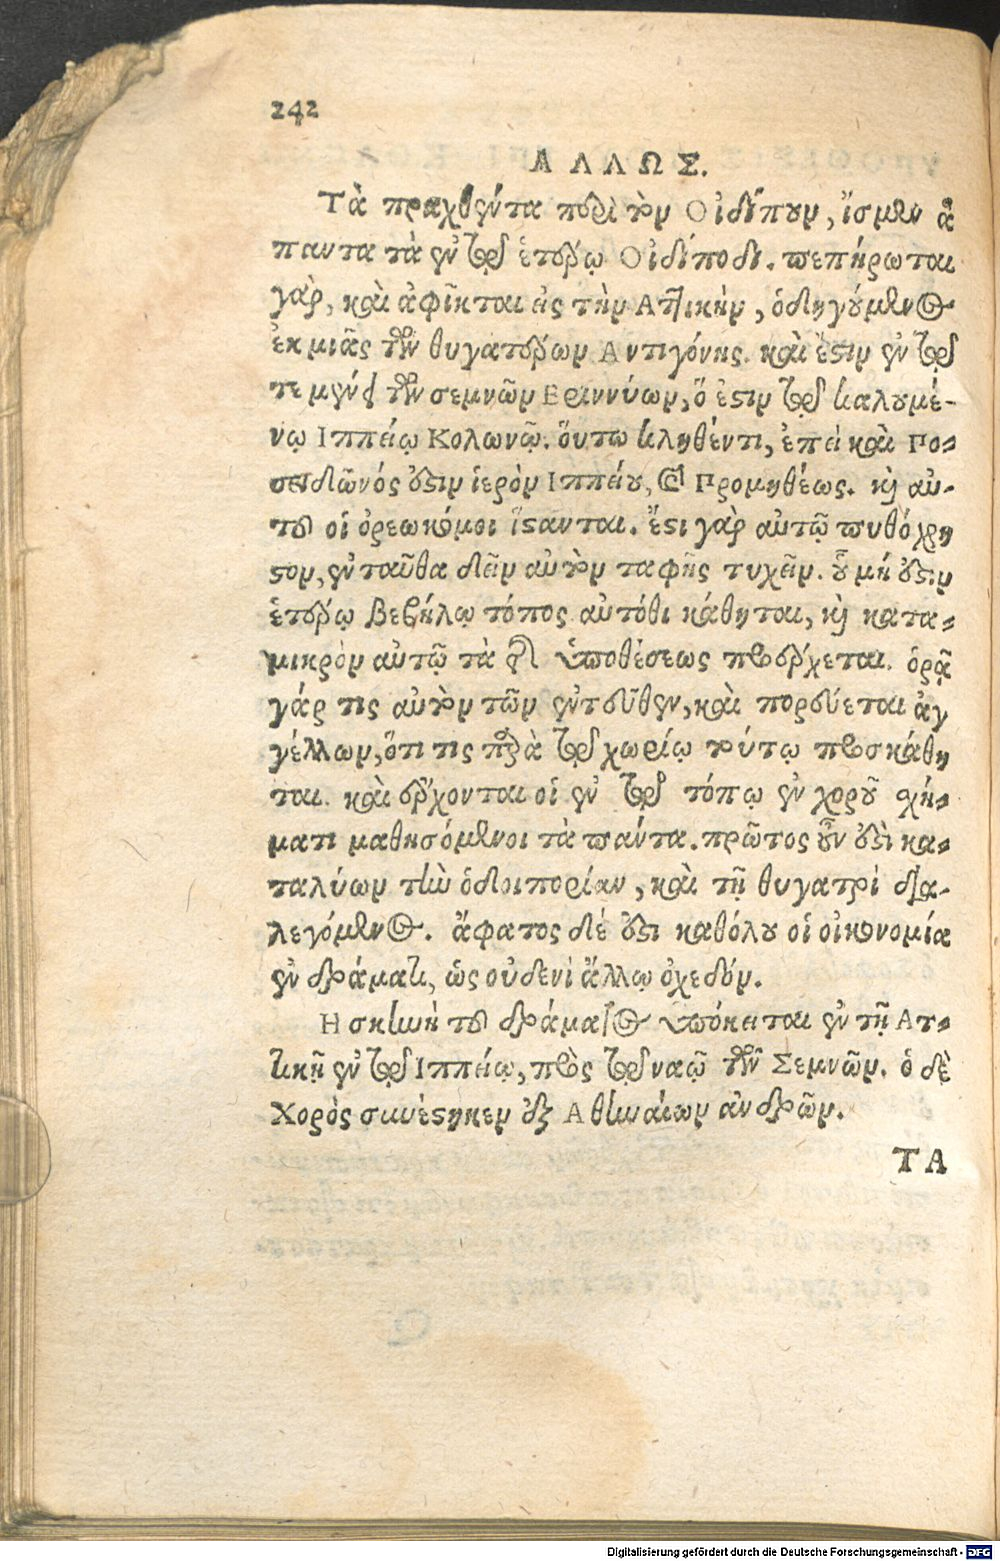 242
ΑΛΛΩΣ.
Τὰ πραχθέντα περὶ τὸν Οἰδίπουν, ἴσμεν ἅ
παντα τὰ ἐν τῷ ἑτέρῳ Οἰδίποδι. πεπήρωται
γὰρ, καὶ ἀφῖκται εἰς τὴν Ἀττικὴν, ὁδηγούμενος
ἐκ μιᾶς τῶν θυγατέρων Ἀντιγόνης. καὶ ἔστιν ἐν τῷ
τεμένει τῶν σεμνῶν Εριννύων, ὅ ἐστιν τῷ καλουμέ-
νῳ Ιππείῳ Κολωνῷ. ὅυτω κληθέντι, ἐπεὶ καὶ Πο-
σειδῶνός ἐστιν ἱερὸν Ιππείου, καὶ Προμηθέως. καὶ αὐ-
τοῦ οἱ ὀρεωκόμοι ἵστανται. ἔστι γὰρ αὐτῷ πυθόχρη
στον, ἐνταῦθα δεῖν αὐτὸν ταφῆς τυχεῖν. οὗ μή ἐστιν
ἑτέρῳ βεβήλῳ τόπος αὐτόθι κάθηται, καὶ κατα-
μικρὸν αὐτῷ τὰ τῆς ὑποθέσεως προέρχεται. ὁρᾷ
γάρ τις αὐτὸν τῶν ἐντεῦθεν, καὶ πορεύεται ἀγ
γέλλων, ὅτι τις παρὰ τῷ χωρίῳ τούτῳ προσκάθη
ται. καὶ ἔρχονται οἱ ἐν τῷ τόπῳ ἐν χοροῦ σχή-
ματι μαθησόμενοι τὰ πάντα. πρῶτος οὖν ἐστὶ κα-
ταλύων τὴν ὁδοιπορίαν, καὶ τῇ θυγατρὶ δια-
λεγόμενος. ἄφατος δέ ἐστι καθόλου οἱ οἰκονομία
ἐν δράματι, ὡς οὐδενὶ ἄλλῳ σχεδόν.
Η σκηνὴ τοῦ δράματος ὑπόκειται ἐν τῇ Ατ-
τικῇ ἐν τῷ Ιππείῳ, πρὸς τῷ ναῷ τῶν Σεμνῶν. ὁ δὲ
Χορὸς συνέστηκεν ἐξ Αθηναίων ανδρῶν.
ΤΑ
Digitalisierung gefördert durch die Deutsche Forschungsgemeinschaft - DFG